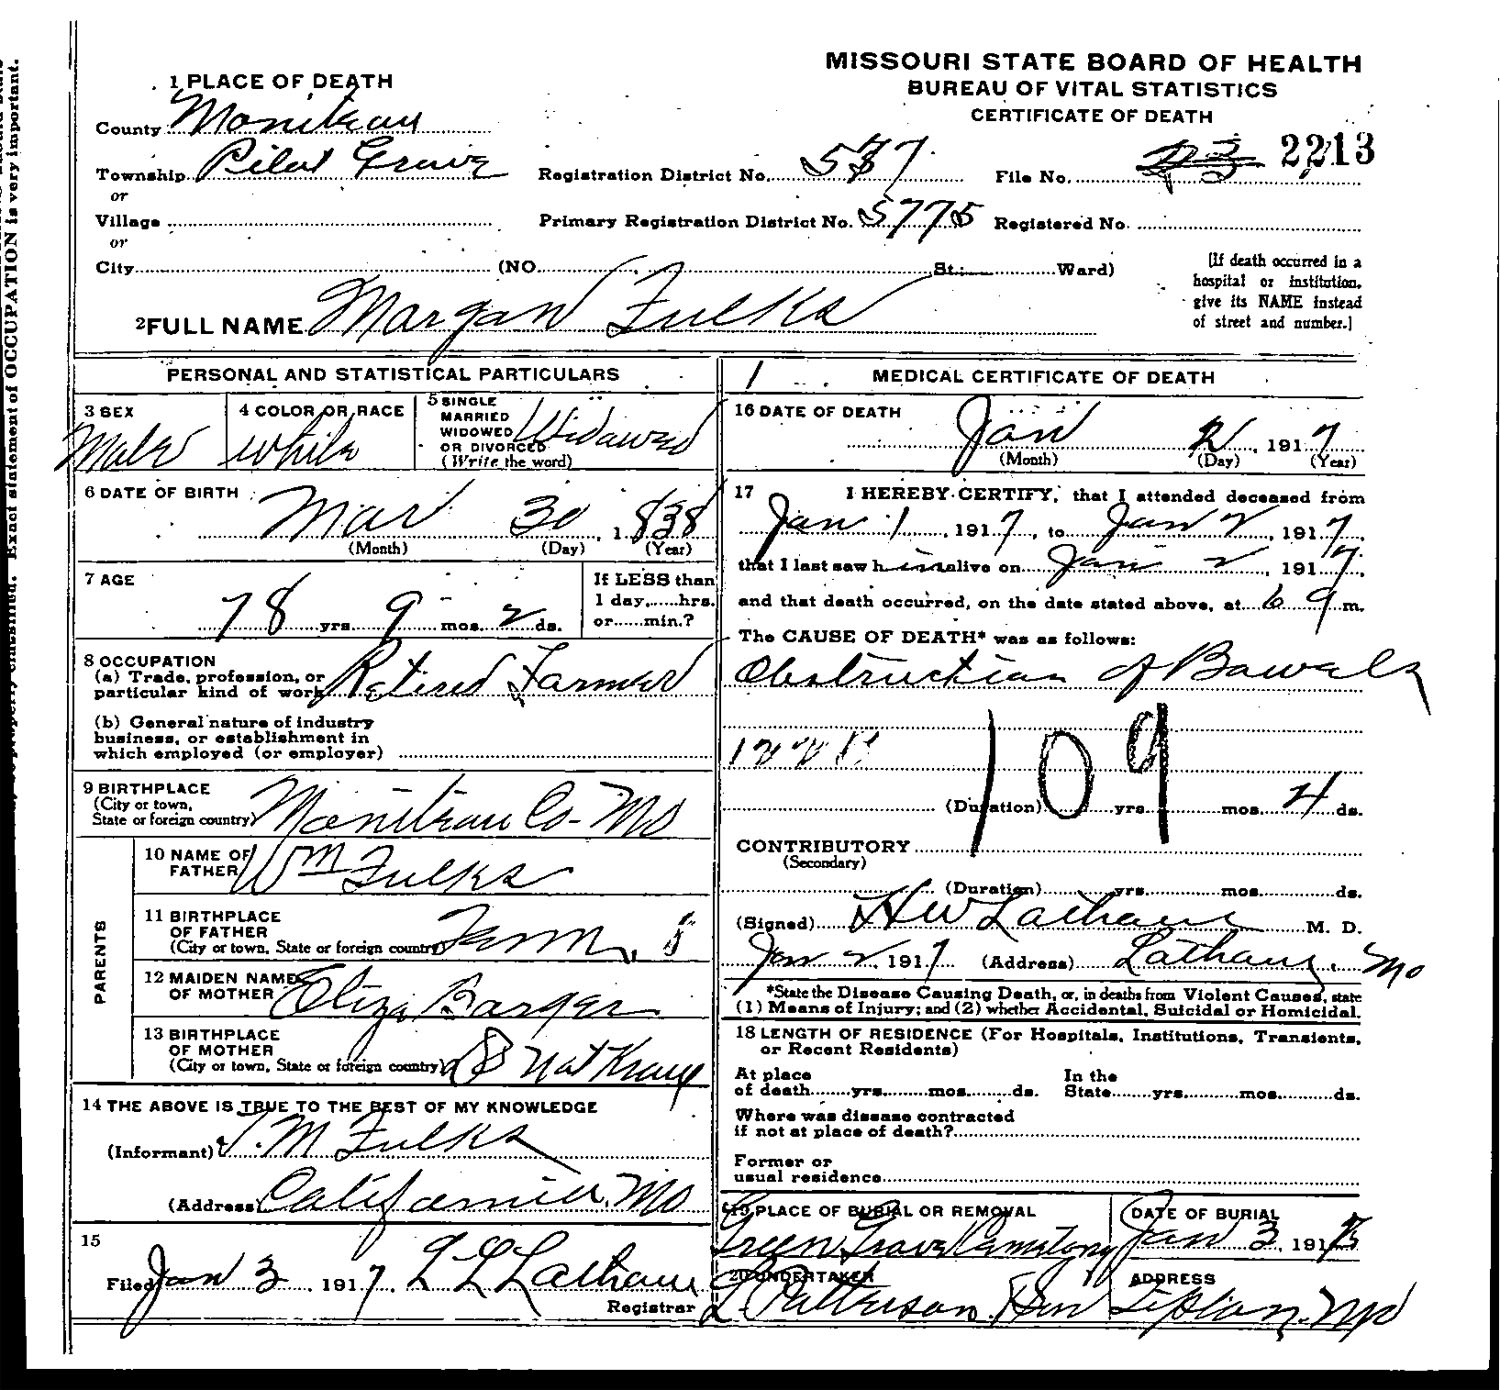 MISSOURI STATE BOARD OF HEALTH
BUREAU OF VITAL STATISTICS
CERTIFICATE OF DEATH
1 PLACE OF DEATH
County Moniteau
Township Pilot Grove Registration District No. 537 File No. 2213
or
Village Primary Registration District No. 5775 Registered No.
or
City (NO. St.; Ward)
[If death occurred in a
hospital or institution,
give its NAME instead
of street and number.]
2 FULL NAME Morgan Fulks
PERSONAL AND STATISTICAL PARTICULARS
3 SEX
Male
4 COLOR OR RACE
White
5 SINGLE
MARRIED
WIDOWED
OR DIVORCED
(Write the word)
Widowed
6 DATE OF BIRTH
Mar 30, 1838
(Month) (Day) (Year)
7 AGE
78 yrs. 9 mos. 2 ds.
If LESS than
1 day, hrs.
or min.?
8 OCCUPATION
(a) Trade, profession, or
particular kind of work Retired Farmer
(b) General nature of industry
business, or establishment in
which employed (or employer)
9 BIRTHPLACE
(City or town,
State or foreign country) Moniteau Co- Mo
PARENTS
10 NAME OF
FATHER Wm Fulks
11 BIRTHPLACE
OF FATHER
(City or town, State or foreign country) Tenn.
12 MAIDEN NAME
OF MOTHER Eliza Barger
13 BIRTHPLACE
OF MOTHER
(City or town, State or foreign country) Not Know
14 THE ABOVE IS TRUE TO THE BEST OF MY KNOWLEDGE
(Informant) J. M Fulks
(Address) California, Mo
15
Filed Jan 3, 1917 L L Latham
Registrar
MEDICAL CERTIFICATE OF DEATH
16 DATE OF DEATH
Jan 2, 1917
(Month) (Day) (Year)
17 I HEREBY CERTIFY, that I attended deceased from
Jan 1, 1917, to Jan 2, 1917,
that I last saw him alive on Jan 2, 1917,
and that death occurred, on the date stated above, at 6 a m.
The CAUSE OF DEATH* was as follows:
Obstruction of Bowels
109
(Duration) yrs. mos. 4 ds.
CONTRIBUTORY
(Secondary)
(Duration) yrs. mos. ds.
(Signed) H W Latham M. D.
Jan 2, 1917 (Address) Latham, Mo
*State the Disease Causing Death, or, in deaths from Violent Causes, state
(1) Means of Injury; and (2) whether Accidental, Suicidal or Homicidal.
18 LENGTH OF RESIDENCE (For Hospitals, Institutions, Transients,
or Recent Residents)
At place In the
of death yrs. mos. ds. State yrs. mos. ds.
Where was disease contracted
if not at place of death?
Former or
usual residence
19 PLACE OF BURIAL OR REMOVAL
Green Grove Cemetery
DATE OF BURIAL
Jan 3, 191
20 UNDERTAKER
L. Patterson & Son
ADDRESS
Tipton, Mo
Exact statement of OCCUPATION is very important.